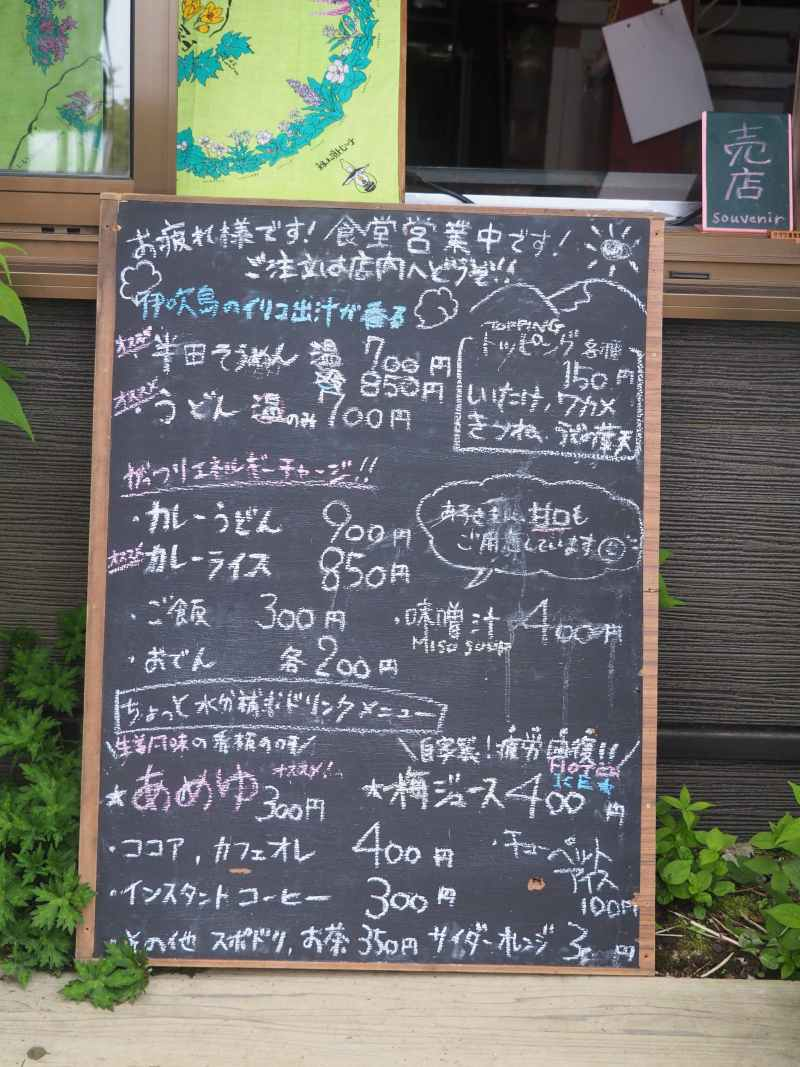 売店
souvenir
お疲れ様です!食堂営業中です!
ご注文は店内へどうぞ!!
伊吹島のイリコ出汁が香る
オススメ 半田そうめん 温 700円
冷 850円
オススメ うどん 温のみ 700円
TOPPING
トッピング各種
150円
しいたけ、ワカメ
きつね、
がっつりエネルギーチャージ!!
・カレーうどん 900円
オススメ カレーライス 850円
お子さまに甘口も
ご用意しています
・ご飯 300円
・味噌汁 400円
Miso soup
・おでん 各200円
ちょっと水分補給ドリンクメニュー
生姜風味の
オススメ!
★あめゆ 300円
自家製!疲労回復!!
HOT
ICE
★梅ジュース 400円
・ココア、カフェオレ 400円
・チューペット
アイス
100円
・インスタントコーヒー 300円
・その他 スポドリ、お茶 350円 サイダーオレンジ